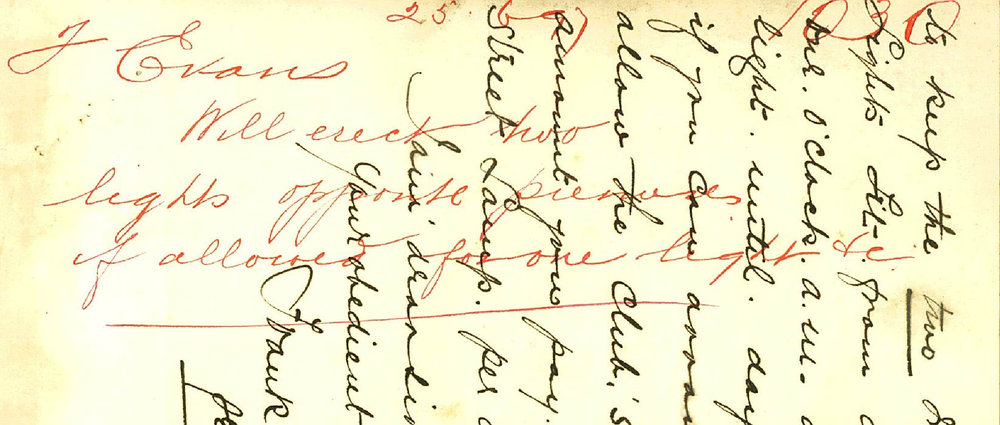 25.
J Evans
Will erect two
lights opposite premises
if allowed for one light &c
to keep the two
Lights Lit. from
one. O'clock. a.m.
light. until. day
if you can arran
allow the Club's
amount you pay.
Street Lamp. per
I am, dear Sir
Your obedient
Frank